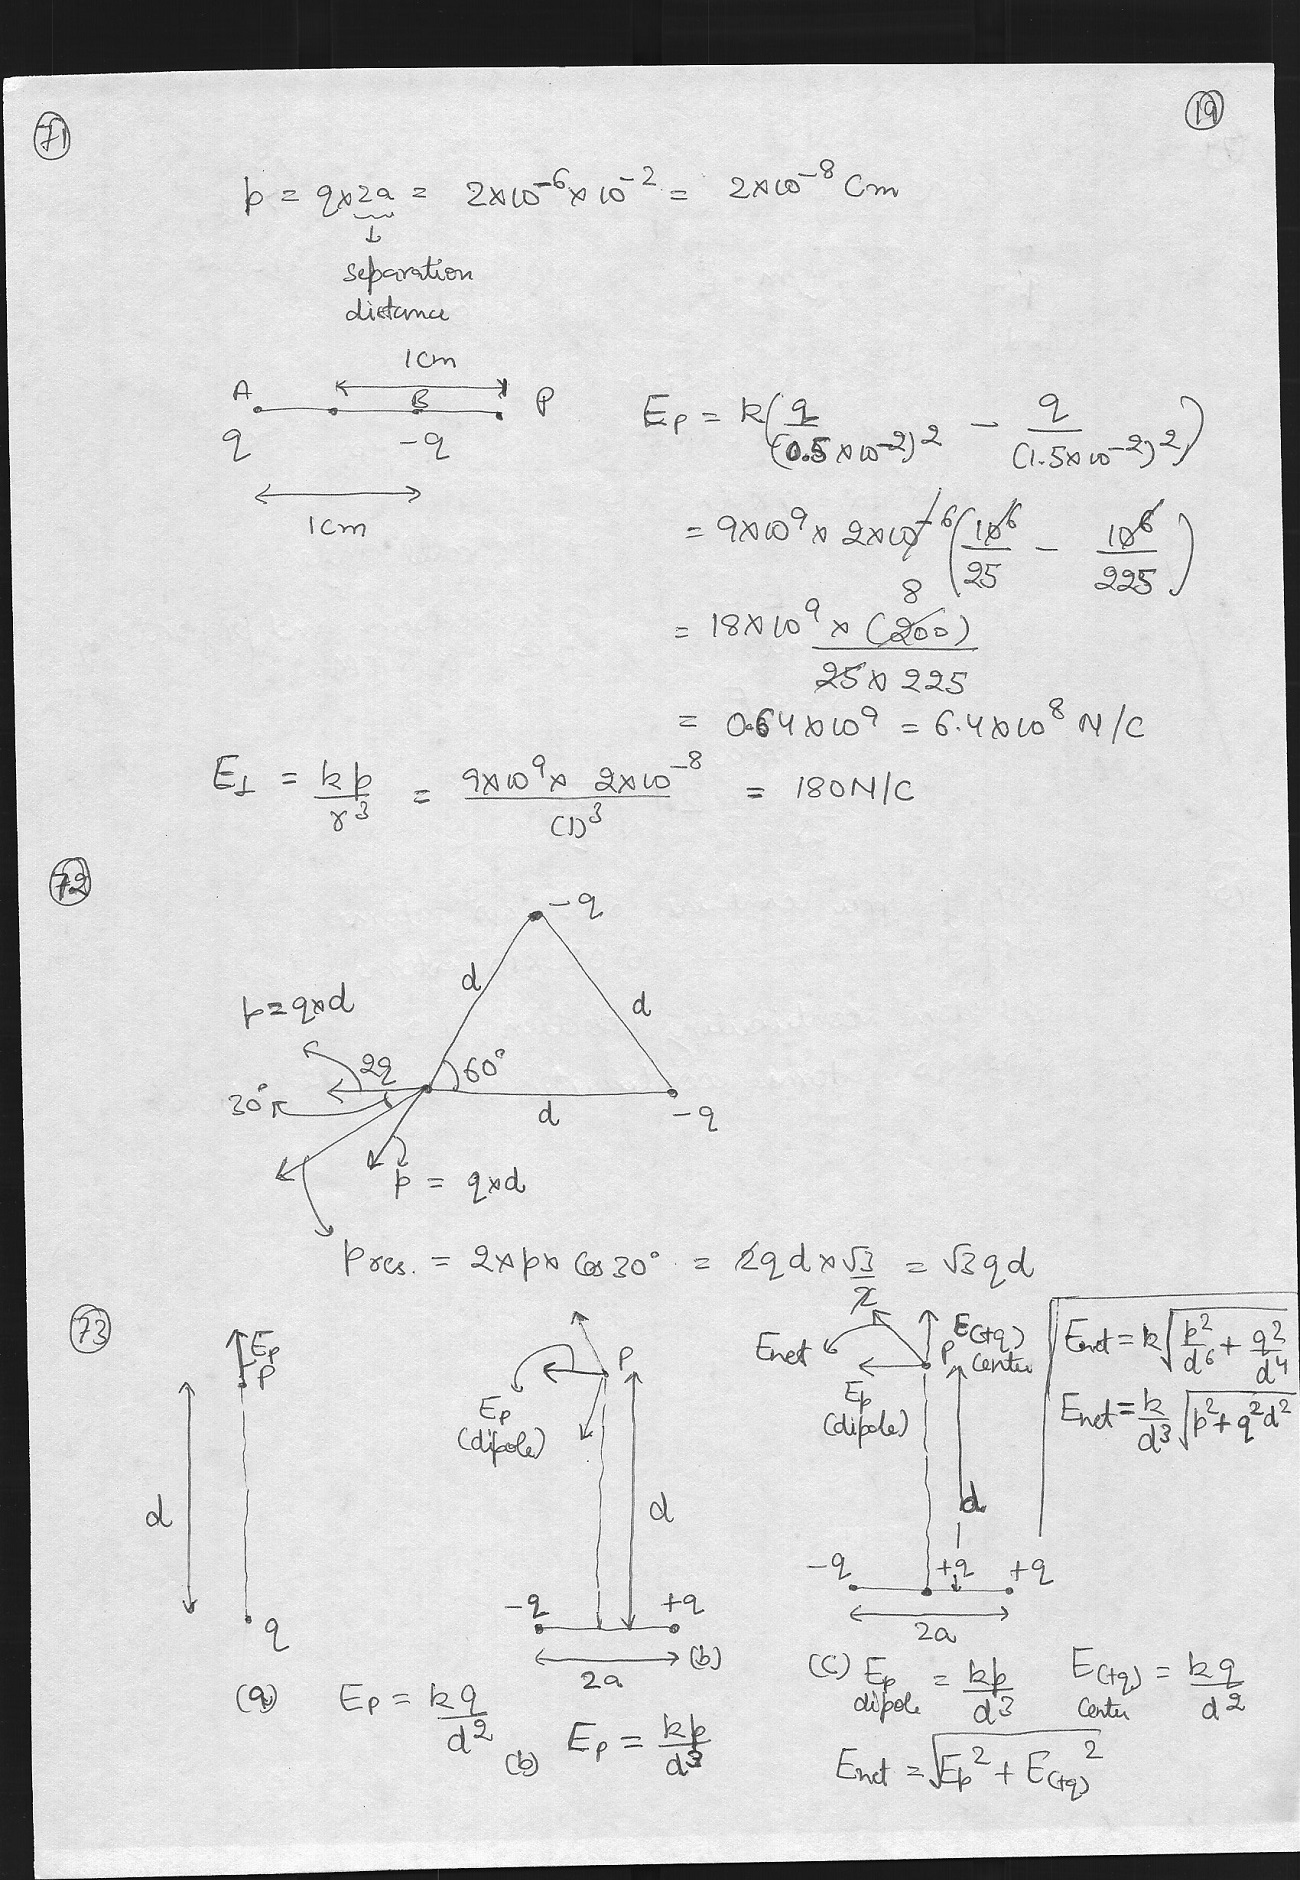 71
19
p = q×2a = 2×10⁻⁶×10⁻² = 2×10⁻⁸ Cm
↓
separation
distance
1cm
A B P
q -q
1cm
E_P = k(q/(0.5×10⁻²)² - q/(1.5×10⁻²)²)
= 9×10⁹ × 2×10⁻⁶(10⁶/25 - 10⁶/225)
8
= 18×10⁹ × (200)/25×225
= 0.64×10⁹ = 6.4×10⁸ N/C
E⊥ = kp/r³ = 9×10⁹× 2×10⁻⁸/(1)³ = 180N/C
72
-q
d
d
p=q×d
2q
60°
30°
d
-q
p = q×d
Pres. = 2×p× Cos30° = 2qd×√3/2 = √3qd
73
E_p
P
d
q
(a) E_p = kq/d²
P
E_p
(dipole)
d
-q +q
2a
(b)
(b) E_p = kp/d³
Enet
E(+q)
center
P
E_p
(dipole)
d
-q +q +q
2a
(C) E_p dipole = kp/d³ E(+q) center = kq/d²
Enet = √E_p² + E(+q)²
Enet = k√p²/d⁶ + q²/d⁴
Enet = k/d³ √p² + q²d²